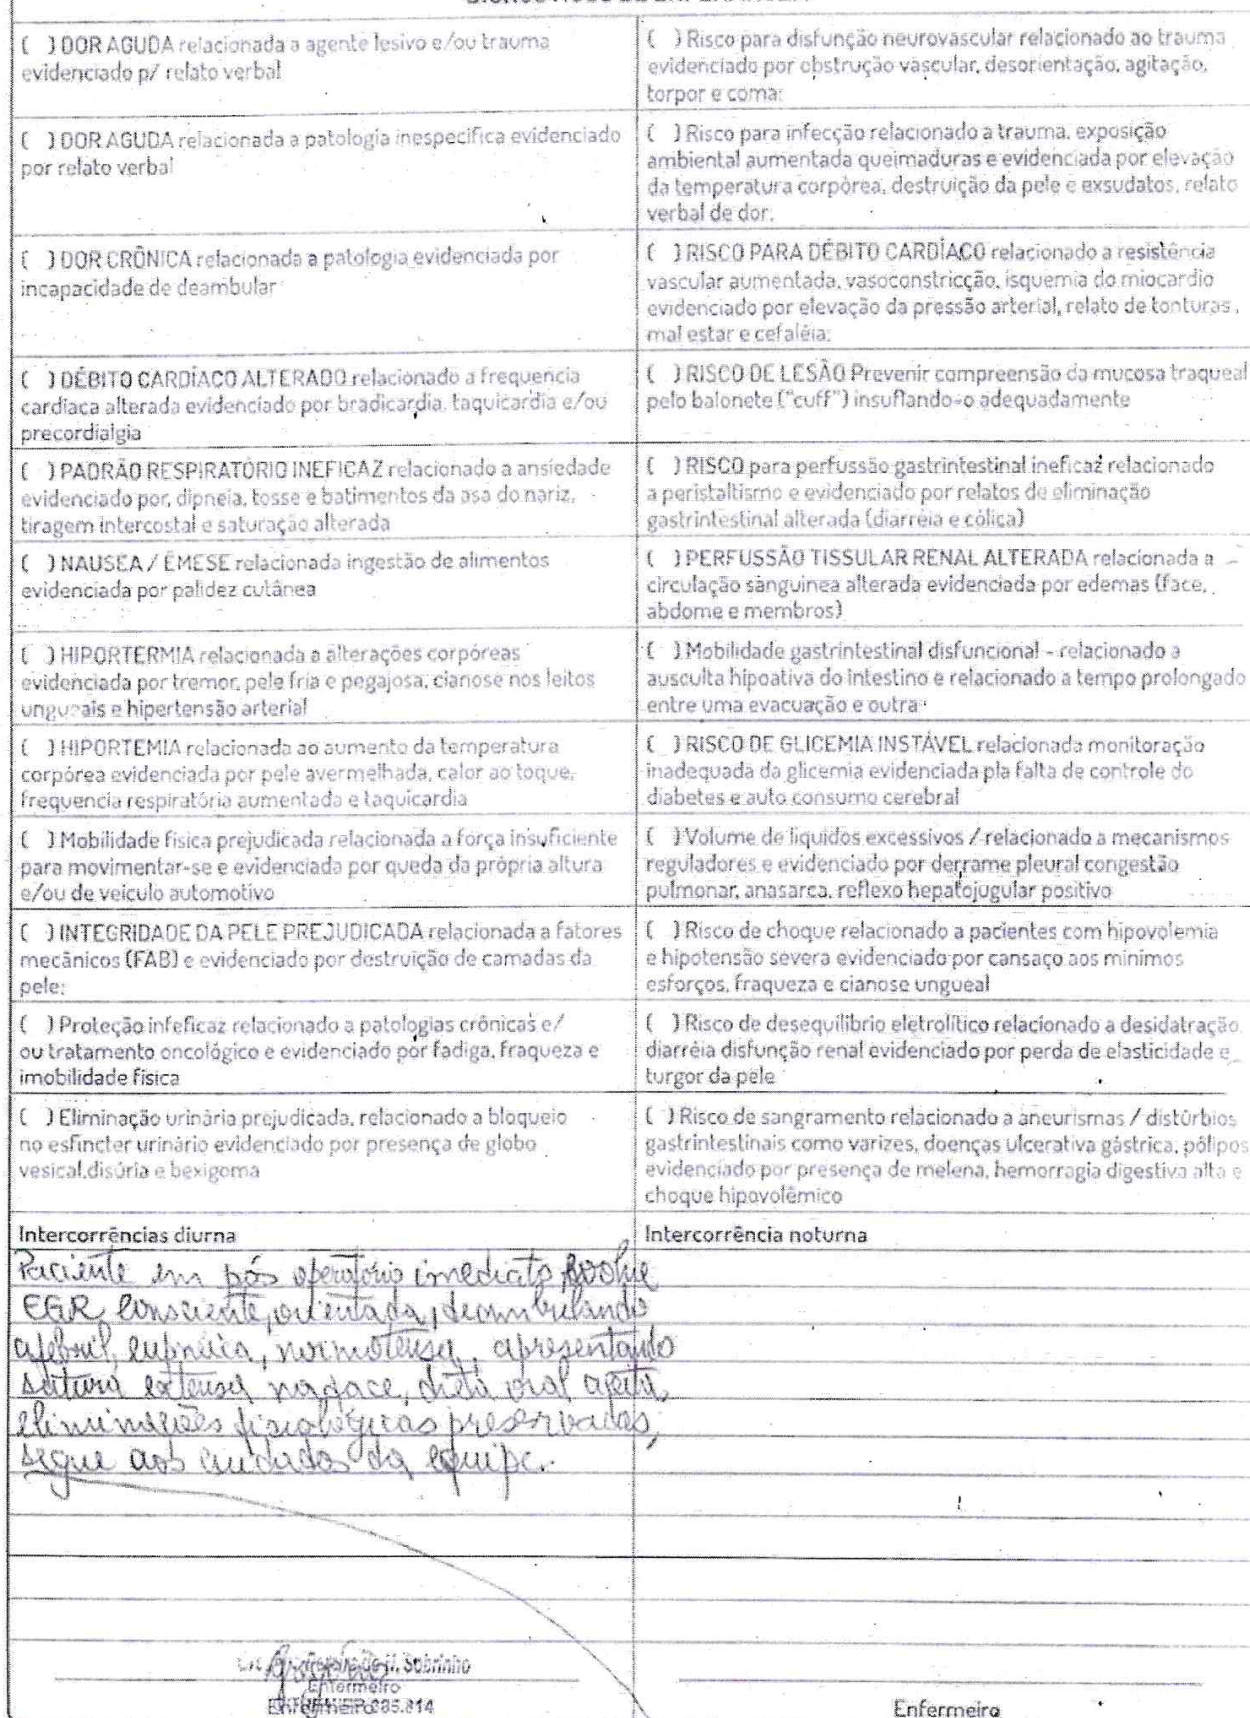 ( ) DOR AGUDA relacionada a agente lesivo e/ou trauma
evidenciado p/ relato verbal
( ) Risco para disfunção neurovascular relacionado ao trauma
evidenciado por obstrução vascular, desorientação, agitação,
torpor e coma:
( ) DOR AGUDA relacionada a patologia inespecifica evidenciado
por relato verbal
( ) Risco para infecção relacionado a trauma, exposição
ambiental aumentada queimaduras e evidenciada por elevação
da temperatura corpórea, destruição da pele e exsudatos, relato
verbal de dor;
( ) DOR CRÔNICA relacionada a patologia evidenciada por
incapacidade de deambular
( ) RISCO PARA DÉBITO CARDÍACO relacionado a resistência
vascular aumentada, vasoconstricção, isquemia do miocardio
evidenciado por elevação da pressão arterial, relato de tonturas,
mal estar e cefaléia;
( ) DÉBITO CARDÍACO ALTERADO relacionado a frequencia
cardíaca alterada evidenciado por bradicardia, taquicardia e/ou
precordialgia
( ) RISCO DE LESÃO Prevenir compreensão da mucosa traqueal
pelo balonete ("cuff") insuflando-o adequadamente
( ) PADRÃO RESPIRATÓRIO INEFICAZ relacionado a ansiedade
evidenciado por, dipneia, tosse e batimentos da asa do nariz,
tiragem intercostal e saturação alterada
( ) RISCO para perfussão gastrintestinal ineficaz relacionado
a peristaltismo e evidenciado por relatos de eliminação
gastrintestinal alterada (diarréia e cólica)
( ) NAUSEA / ÊMESE relacionada ingestão de alimentos
evidenciada por palidez cutânea
( ) PERFUSSÃO TISSULAR RENAL ALTERADA relacionada a
circulação sanguinea alterada evidenciada por edemas (face,
abdome e membros)
( ) HIPORTERMIA relacionada a alterações corpóreas
evidenciada por tremor, pele fria e pegajosa, cianose nos leitos
ungueais e hipertensão arterial
( ) Mobilidade gastrintestinal disfuncional - relacionado a
ausculta hipoativa do intestino e relacionado a tempo prolongado
entre uma evacuação e outra
( ) HIPORTEMIA relacionada ao aumento da temperatura
corpórea evidenciada por pele avermelhada, calor ao toque,
frequencia respiratória aumentada e taquicardia
( ) RISCO DE GLICEMIA INSTÁVEL relacionada monitoração
inadequada da glicemia evidenciada pla falta de controle do
diabetes e auto consumo cerebral
( ) Mobilidade física prejudicada relacionada a força insuficiente
para movimentar-se e evidenciada por queda da própria altura
e/ou de veículo automotivo
( ) Volume de liquidos excessivos / relacionado a mecanismos
reguladores e evidenciado por derrame pleural congestão
pulmonar, anasarca, reflexo hepatojugular positivo
( ) INTEGRIDADE DA PELE PREJUDICADA relacionada a fatores
mecânicos (FAB) e evidenciado por destruição de camadas da
pele;
( ) Risco de choque relacionado a pacientes com hipovolemia
e hipotensão severa evidenciado por cansaço aos mínimos
esforços, fraqueza e cianose ungueal
( ) Proteção infeficaz relacionado a patologias crônicas e/
ou tratamento oncológico e evidenciado por fadiga, fraqueza e
imobilidade física
( ) Risco de desequilíbrio eletrolítico relacionado a desidatração
diarréia disfunção renal evidenciado por perda de elasticidade e
turgor da pele
( ) Eliminação urinária prejudicada, relacionado a bloqueio
no esfíncter urinário evidenciado por presença de globo
vesical,disúria e bexigoma
( ) Risco de sangramento relacionado a aneurismas / distúrbios
gastrintestinais como varizes, doenças ulcerativa gástrica, pólipos
evidenciado por presença de melena, hemorragia digestiva alta e
choque hipovolêmico
Intercorrências diurna
Intercorrência noturna
Paciente em pós operatório imediato,
EGR, consciente, orientada, deambulando
afebril, eupneica, normotensa, apresentando
sutura extensa na face, dieta oral aceita,
eliminações fisiológicas preservadas,
segue aos cuidados da equipe.
Sobrinho
Enfermeiro
Enfermeiro
Enfermeiro